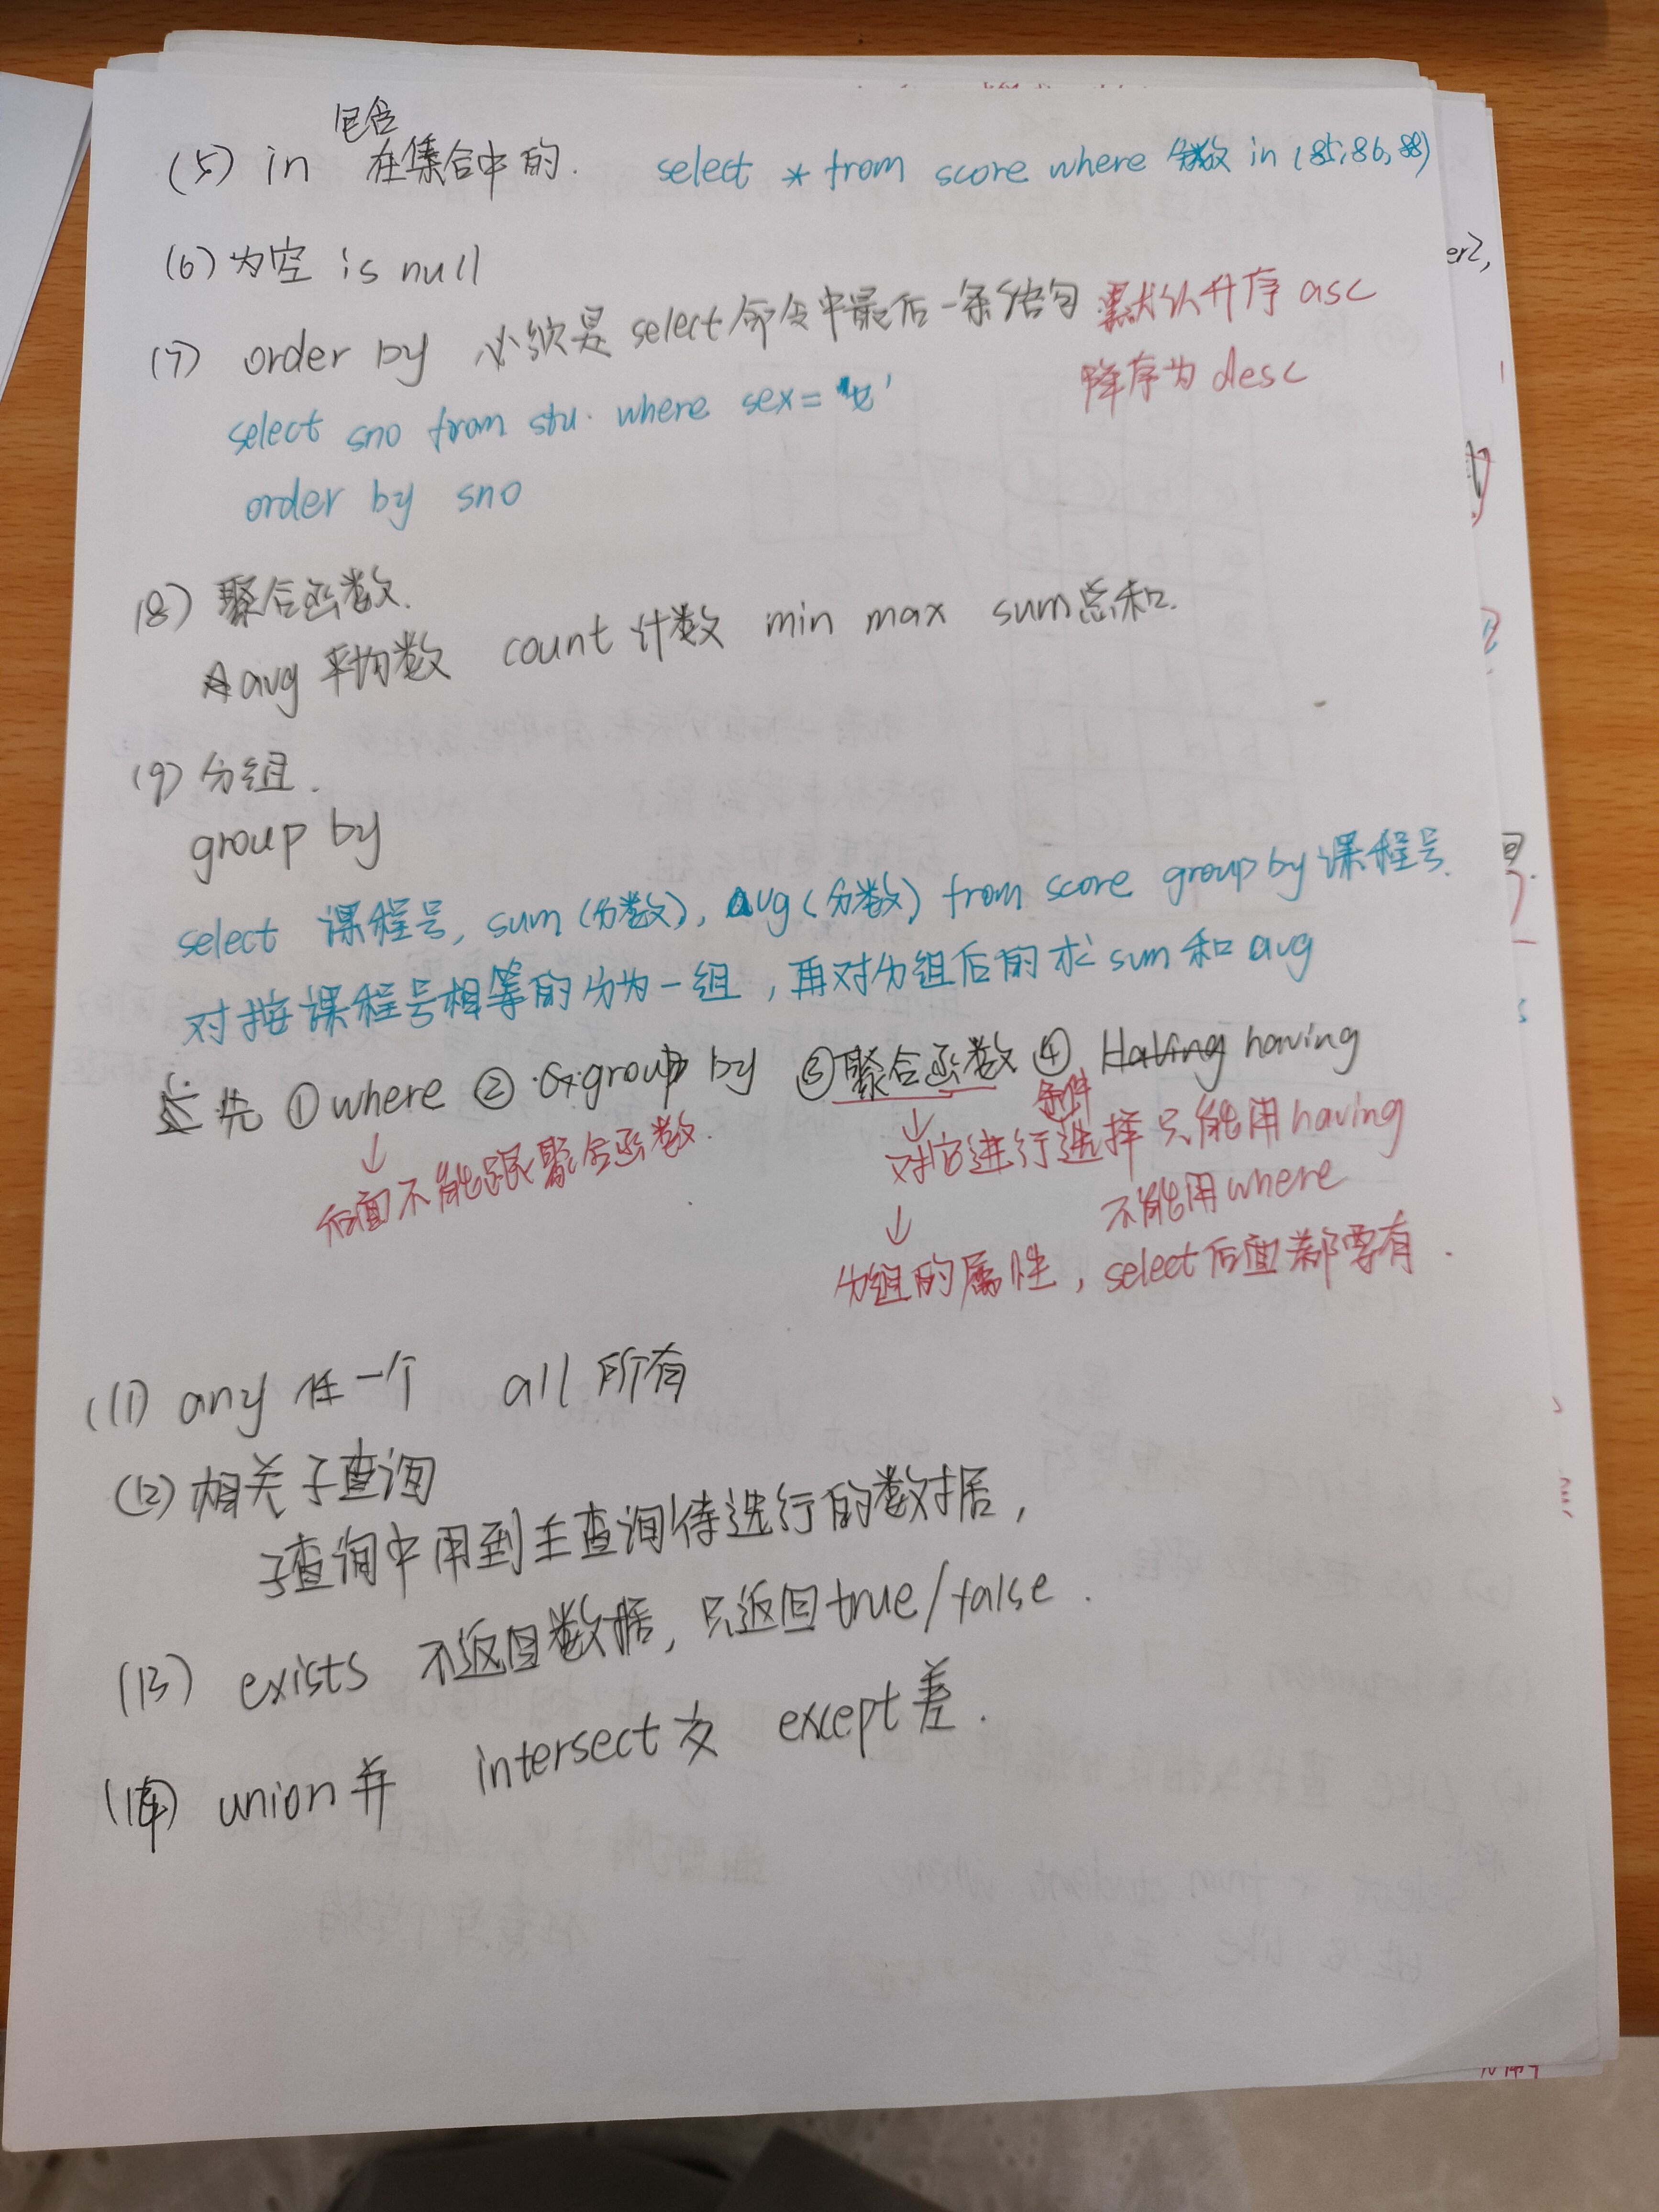 包含
(5) in 在集合中的. select * from score where 分数 in (85,86,88)
(6) 为空 is null
(7) order by 必须是 select 命令中最后一条语句 默认升序 asc
降序为 desc
select sno from stu. where sex='女'
order by sno
(8) 聚合函数.
avg 平均数 count 计数 min max sum 总和.
(9) 分组.
group by
select 课程号, sum(分数), avg(分数) from score group by 课程号.
对按课程号相等的分为一组, 再对分组后的求 sum 和 avg
先 ① where ② group by ③ 聚合函数 ④ having
↓ 后面不能跟聚合函数.
↓ 对它进行条件选择 只能用 having
不能用 where
↓
分组的属性, select 后面都要有.
(11) any 任一个 all 所有
(12) 相关子查询
子查询中用到主查询待进行的数据,
(13) exists 不返回数据, 只返回 true/false.
(14) union 并 intersect 交 except 差.
er2,